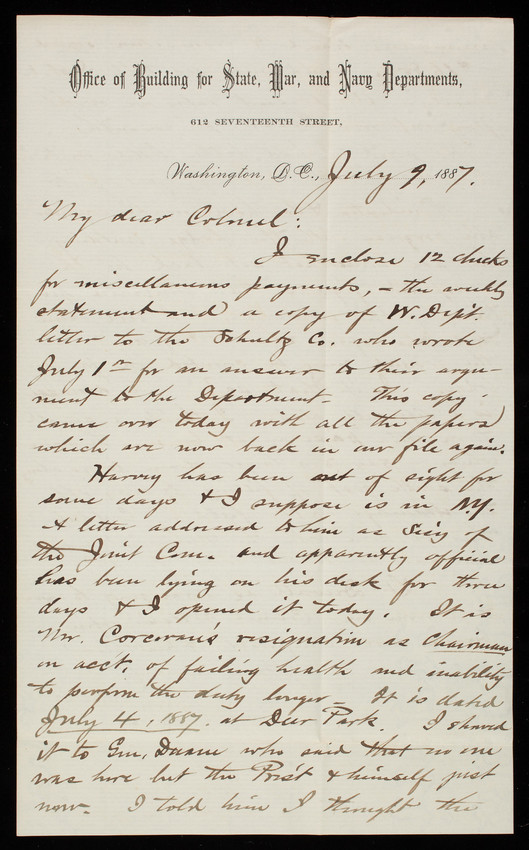 Office of Building for State, War, and Navy Departments,
612 SEVENTEENTH STREET,
Washington, D.C., July 9, 1887.
My dear Colonel:
I enclose 12 checks
for miscellaneous payments, – the weekly
statement and a copy of W. Dep't.
letter to the Schultz Co. who wrote
July 1st for an answer to their argu-
ment to the Department – This copy
came over today with all the papers
which are now back in our file again.
Harvey has been out of sight for
some days & I suppose is in N.Y.
A letter addressed to him as Sec'y of
the Joint Com. and apparently official
has been lying on his desk for three
days & I opened it today. It is
Mr. Corcoran's resignation as Chairman
on acc't. of failing health and inability
to perform the duty longer – It is dated
July 4, 1887. at Deer Park. I showed
it to Gen. Duane who said that no one
was here but the Pres't & himself just
now. I told him I thought the